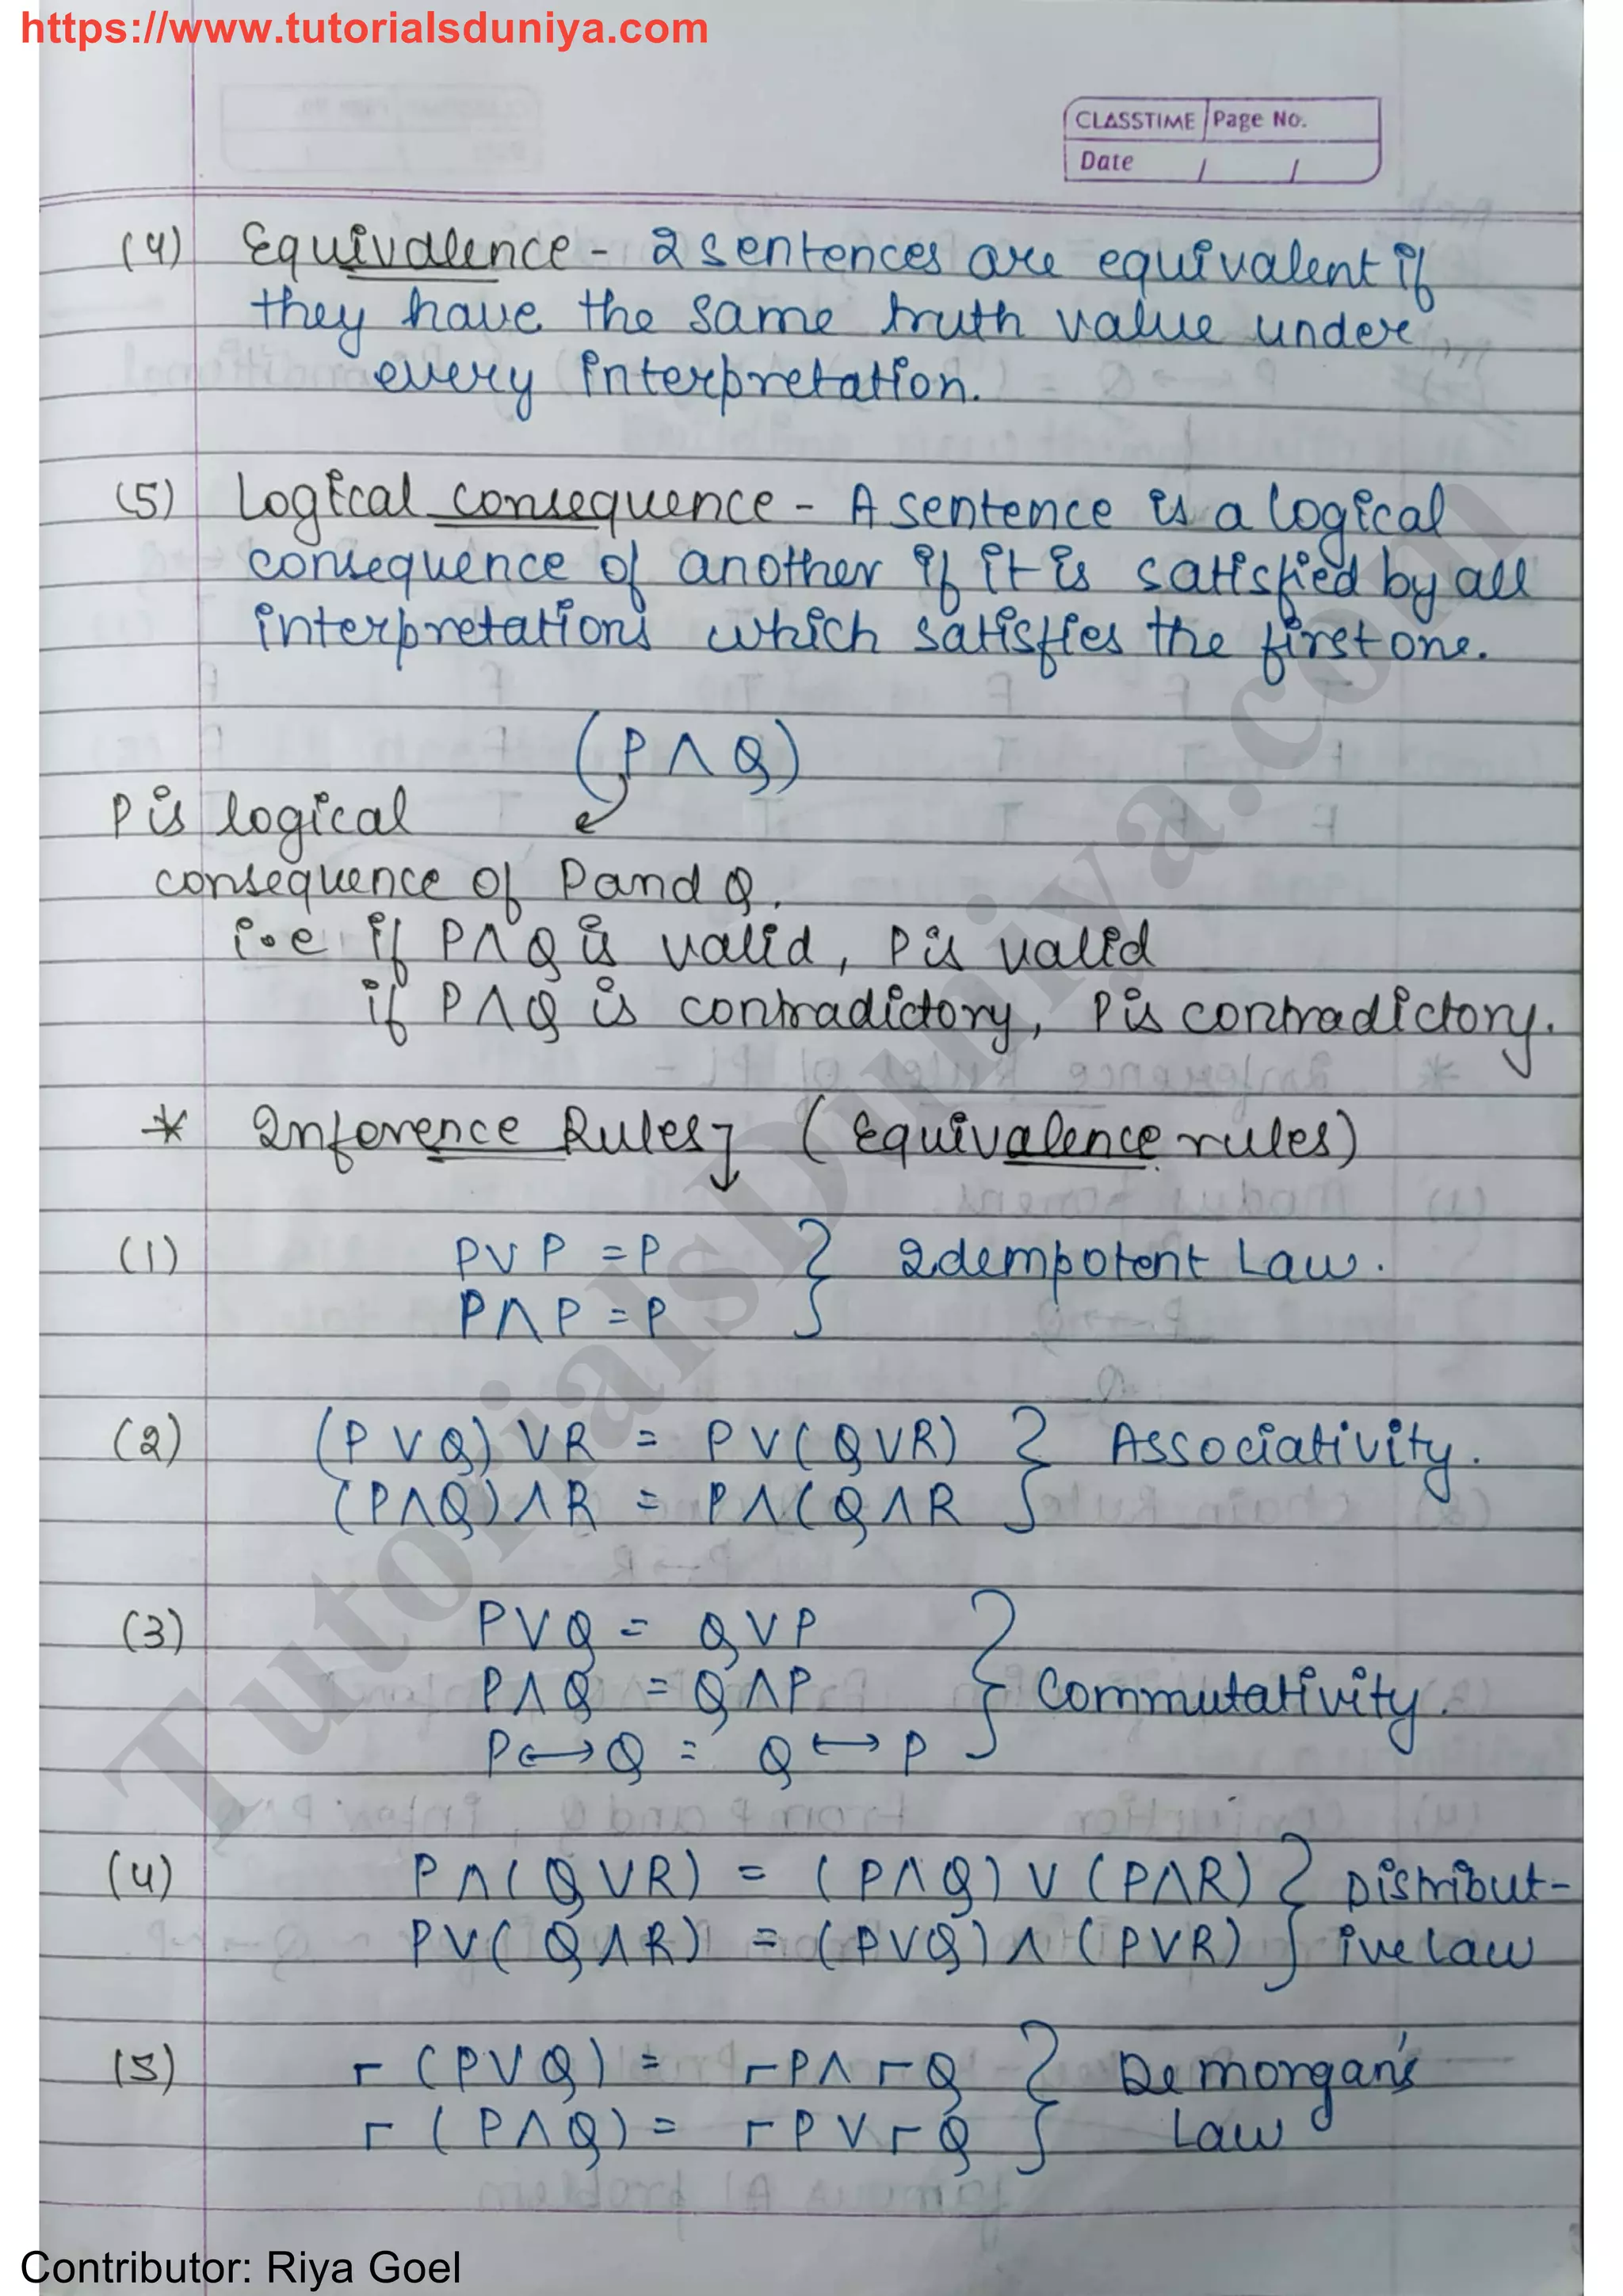 https://www.tutorialsduniya.com
CLASSTIME Page No.
Date / /
(4) Equivalence - 2 sentences are equivalent if
they have the same truth value under
every interpretation.
(5) Logical consequence - A sentence is a logical
consequence of another if it is satisfied by all
interpretations which satisfies the first one.
(P ∧ Q)
P is logical
consequence of P and Q.
i.e if P∧Q is valid, P is valid
if P∧Q is contradictory, P is contradictory.
* Inference Rules (Equivalence rules)
(1) P∨P = P } Idempotent Law.
P∧P = P
(2) (P∨Q)∨R = P∨(Q∨R) } Associativity.
(P∧Q)∧R = P∧(Q∧R
(3) P∨Q = Q∨P
P∧Q = Q∧P } Commutativity.
P↔Q = Q↔P
(4) P∧(Q∨R) = (P∧Q)∨(P∧R) } Distribut-
P∨(Q∧R) = (P∨Q)∧(P∨R) ive Law
(5) ⌐(P∨Q) = ⌐P∧⌐Q } De morgan's
⌐(P∧Q) = ⌐P∨⌐Q Law
TutorialsDuniya.com
Contributor: Riya Goel